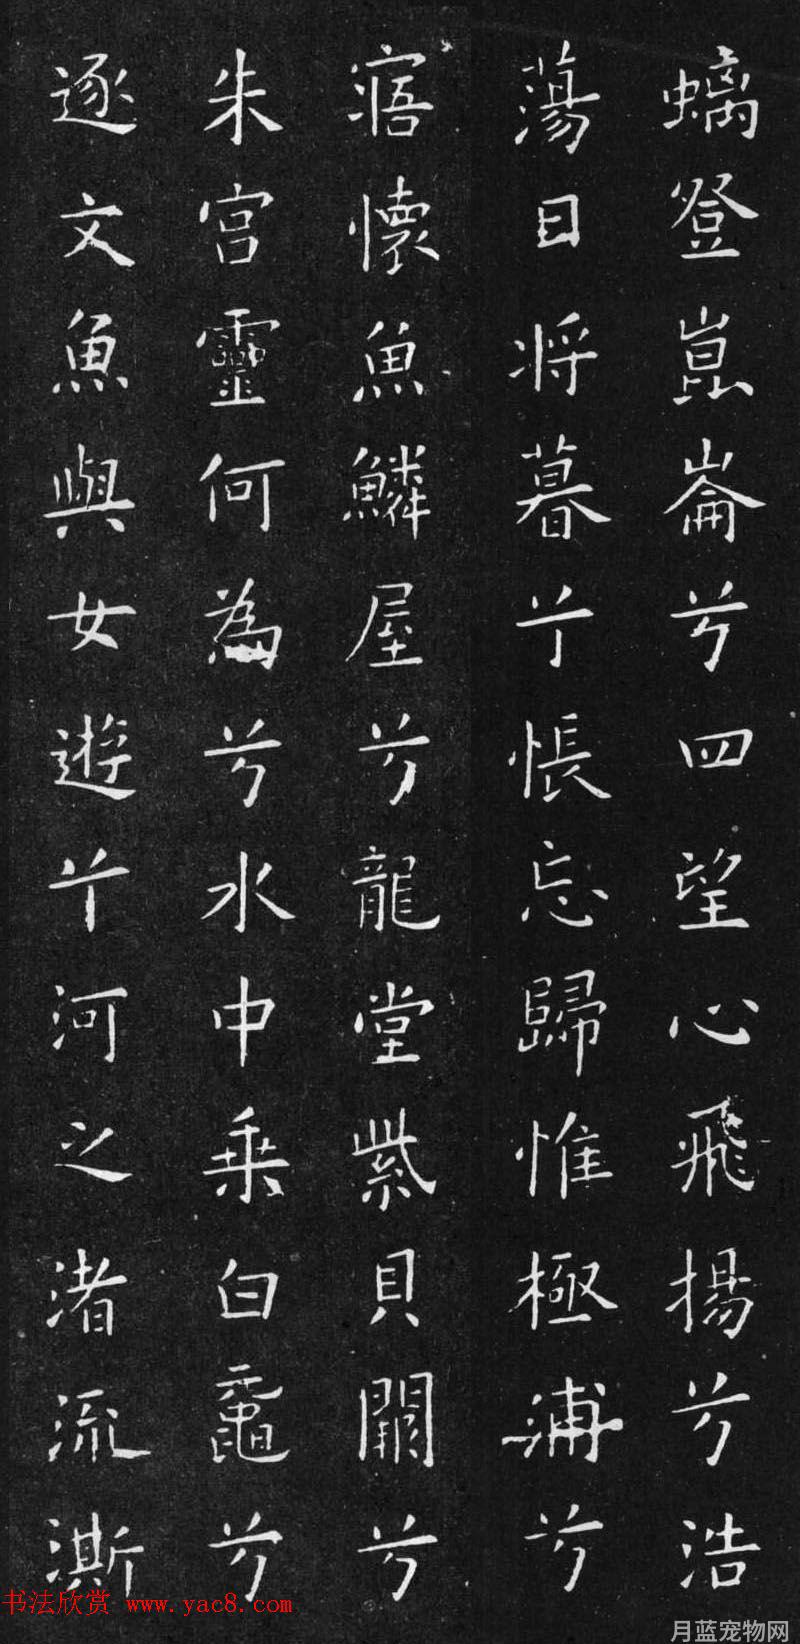 螭登崑崙兮四望心飛揚兮浩
蕩日將暮兮悵忘歸惟極浦兮
寤懷魚鱗屋兮龍堂紫貝闕兮
朱宮靈何為兮水中乗白黿兮
逐文魚與女遊兮河之渚流澌
书法欣赏 www.yac8.com
月蓝宠物网